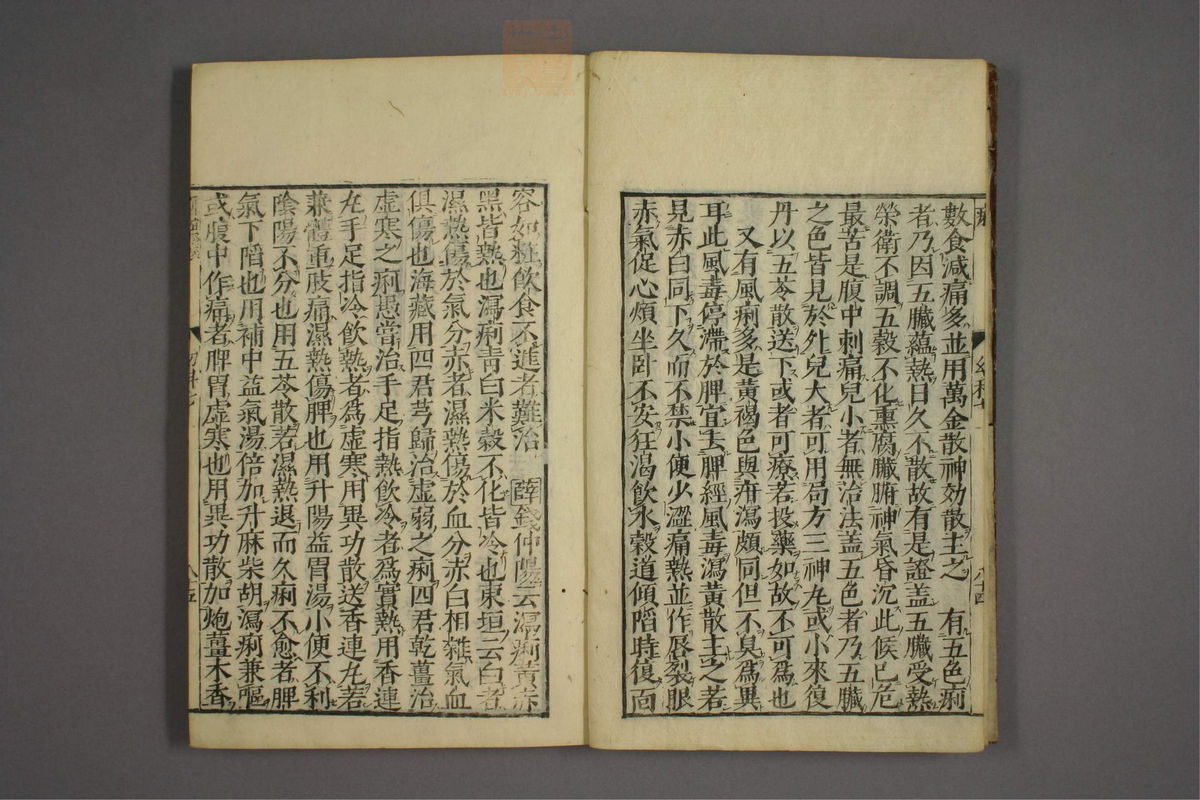 數食減痛多並用萬金散神効散主之　有五色痢
者乃因五臟蘊熱日久不散故有是證蓋五臟受熱
榮衛不調五穀不化熏腐臟腑神氣昏沉此候已危
最苦是腹中刺痛兒小者無治法蓋五色者乃五臟
之色皆見於外兒大者可用局方三神丸或小來復
丹以五苓散送下或者可療若投藥如故不可爲也
又有風痢多是黃褐色與疳瀉頗同但不臭爲異
耳此風毒停滯於脾宜去脾經風毒瀉黃散主之若
見赤白同下久而不禁小便少澀痛熱並作唇裂眼
赤氣促心煩坐卧不安狂渴飲水穀道傾陷時復面
容如粧飲食不進者難治　薛錢仲陽云瀉痢黃赤
黑皆熱也瀉痢青白米穀不化皆冷也東垣云白者
濕熱傷於氣分赤者濕熱傷於血分赤白相雜氣血
俱傷也海藏用四君芎歸治虛弱之痢四君乾薑治
虛寒之痢愚嘗治手足指熱飲冷者爲實熱用香連
丸手足指冷飲熱者爲虛寒用異功散送香連丸若
兼體重肢痛濕熱傷脾也用升陽益胃湯小便不利
陰陽不分也用五苓散若濕熱退而久痢不愈者脾
氣下陷也用補中益氣湯倍加升麻柴胡瀉痢兼嘔
或腹中作痛者脾胃虛寒也用異功散加炮薑木香